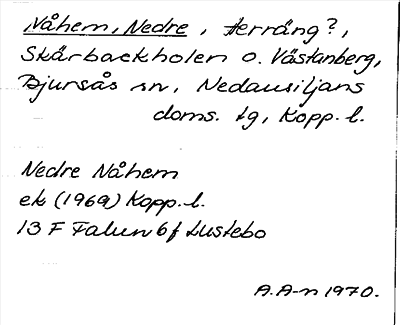 Nåhem, Nedre, Herräng?,
Skärbackholen o. Västanberg,
Bjursås sn, Nedansiljans
doms. tg, Kopp. l.
Nedre Nåhem
ek (1969) Kopp. l.
13 F Falun 6f Lustebo
A.A-n 1970.